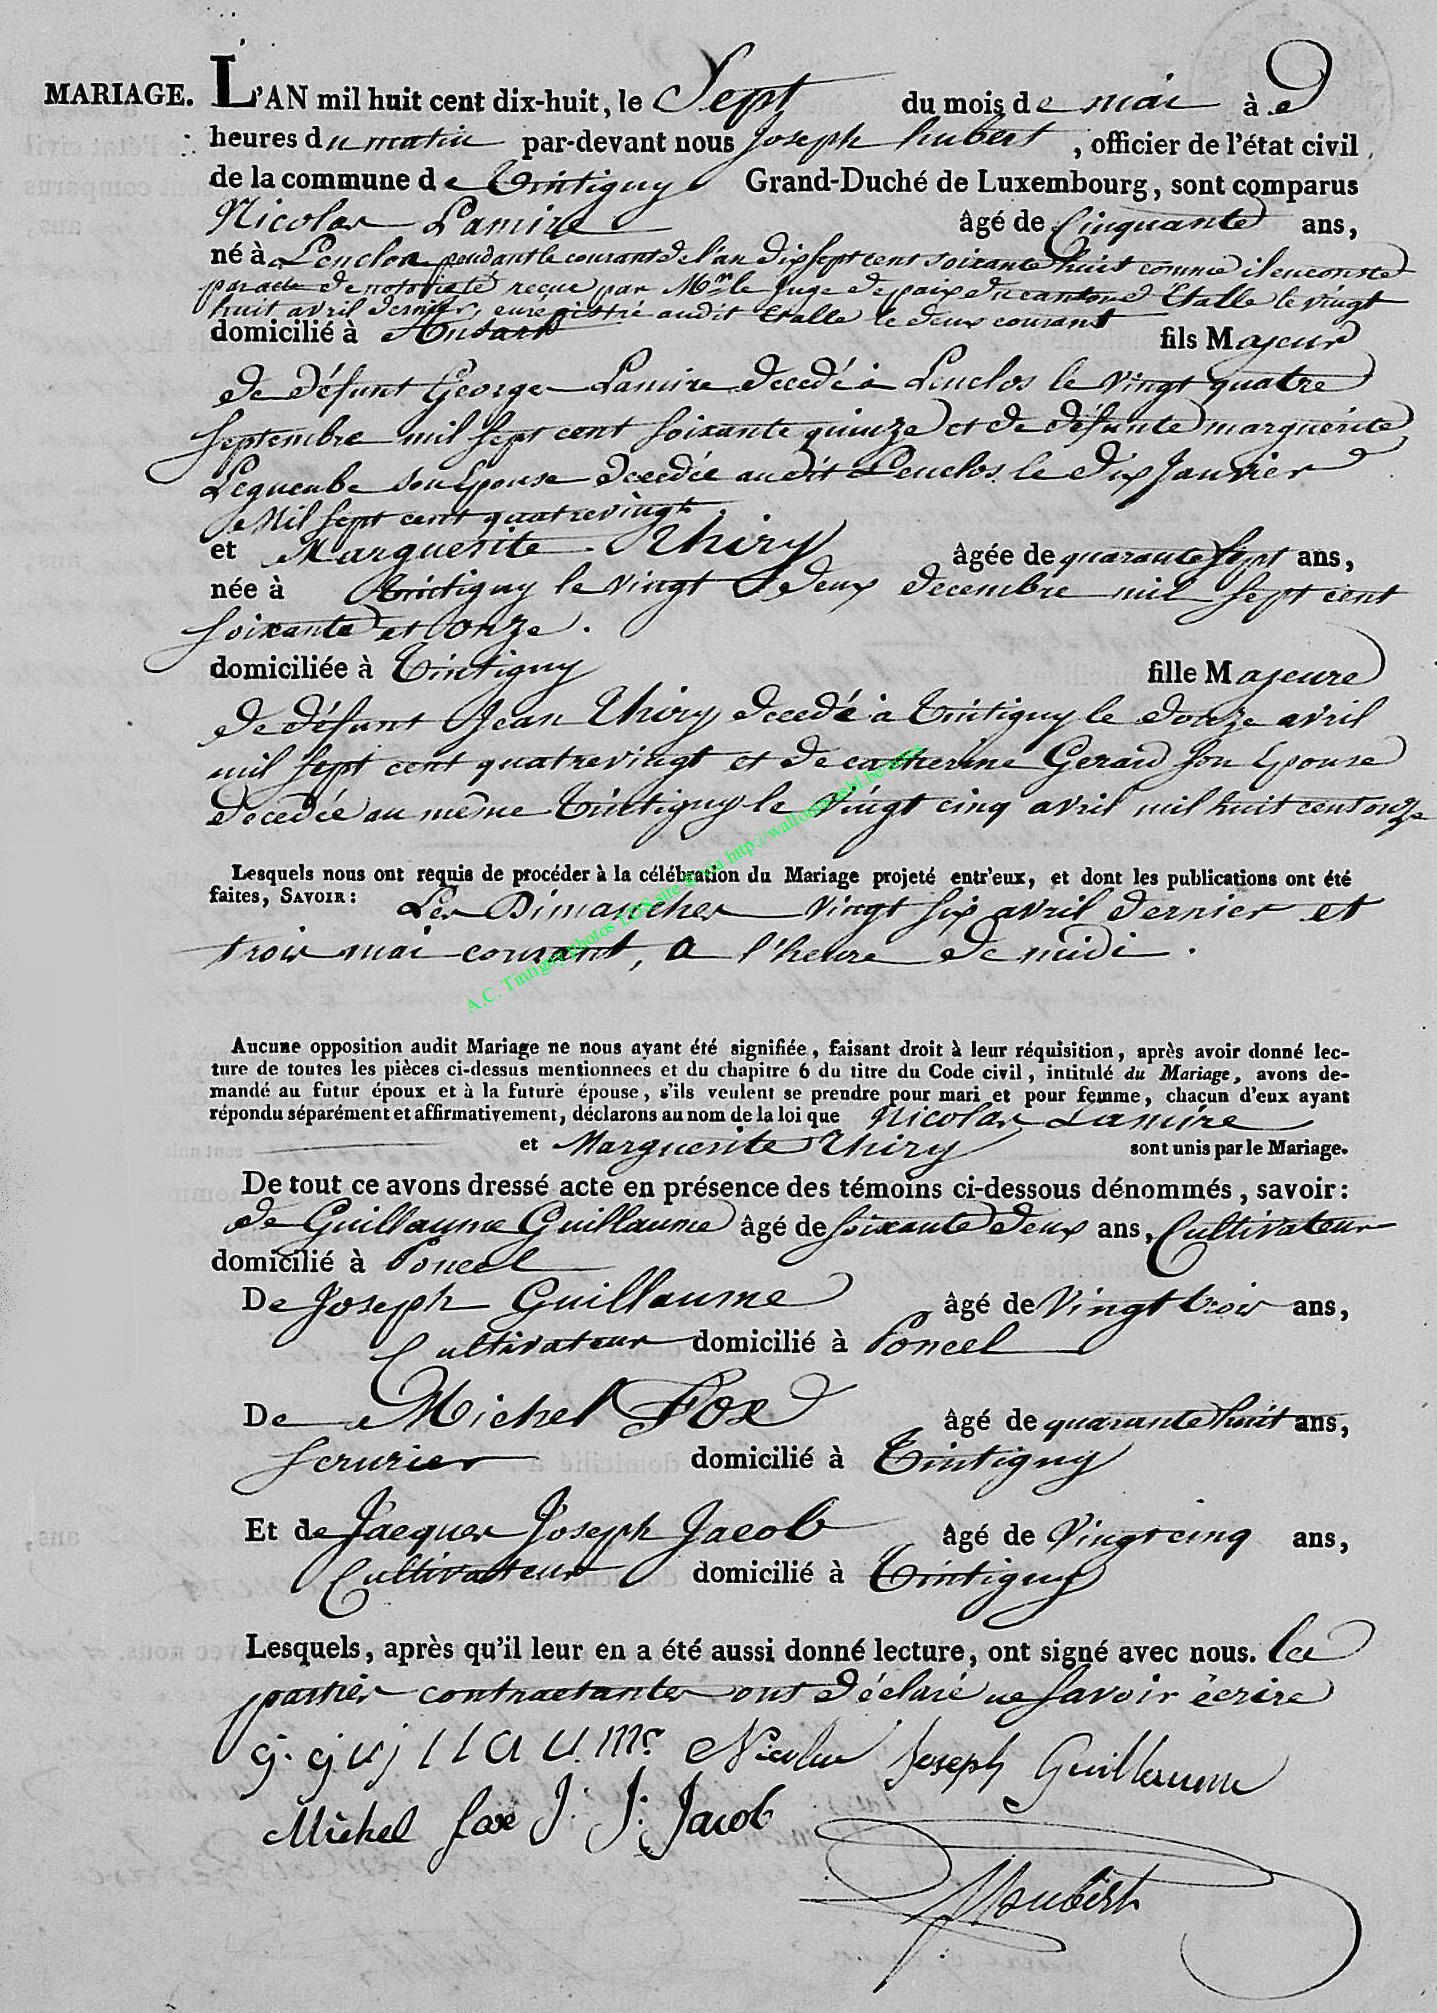 MARIAGE. L'AN mil huit cent dix-huit, le Sept du mois de mai à 9
heures du matin par-devant nous Joseph hubert, officier de l'état civil
de la commune de Tintigny Grand-Duché de Luxembourg, sont comparus
Nicolas Lamire âgé de Cinquante ans,
né à Lenclos pendant le courant de l'an dix sept cent soixante huit comme il en conste
par acte de notoriété recue par Mr. le Juge de paix du canton d'Etalle le vingt
huit avril dernier, enregistré audit Etalle le deux courant
domicilié à Ansart fils Majeur
de défunt George Lamire decedé à Lenclos le vingt quatre
septembre mil sept cent soixante quinze et de défunte marguerite
son Epouse decedée audit Lenclos le dix Janvier
Mil sept cent quatrevingt
et Marguerite Thiry âgée de quarante sept ans,
née à Tintigny le vingt deux decembre mil sept cent
soixante et onze.
domiciliée à Tintigny fille Majeure
de défunt Jean Thiry decedé à Tintigny le douze avril
mil sept cent quatrevingt et de catherine Gerard son Epouse
decedée au même Tintigny le vingt cinq avril mil huit cent onze
Lesquels nous ont requis de procéder à la célébration du Mariage projeté entr'eux, et dont les publications ont été
faites, SAVOIR: Les Dimanches vingt six avril dernier et
trois mai courant, a l'heure de midi.
A.C. Tintigny photos LDS site via http://wallonia-asbl.be
Aucune opposition audit Mariage ne nous ayant été signifiée, faisant droit à leur réquisition, après avoir donné lec-
ture de toutes les pièces ci-dessus mentionnees et du chapitre 6 du titre du Code civil, intitulé du Mariage, avons de-
mandé au futur époux et à la future épouse, s'ils veulent se prendre pour mari et pour femme, chacun d'eux ayant
répondu séparément et affirmativement, déclarons au nom de la loi que Nicolas Lamire
et Marguerite Thiry sont unis par le Mariage.
De tout ce avons dressé acte en présence des témoins ci-dessous dénommés, savoir:
de Guillaume Guillaume âgé de soixante deux ans, Cultivateur
domicilié à Poncel
De Joseph Guillaume âgé de Vingt trois ans,
Cultivateur domicilié à Poncel
De Michel Fox âgé de quarante huit ans,
serurier domicilié à Tintigny
Et de Jacques Joseph Jacob âgé de Vingt cinq ans,
Cultivateur domicilié à Tintigny
Lesquels, après qu'il leur en a été aussi donné lecture, ont signé avec nous. les
parties contractantes ont déclaré ne savoir écrire
g. guillaume Nicolas Joseph Guillaume
Michel fox J: J: Jacob
J Hubert